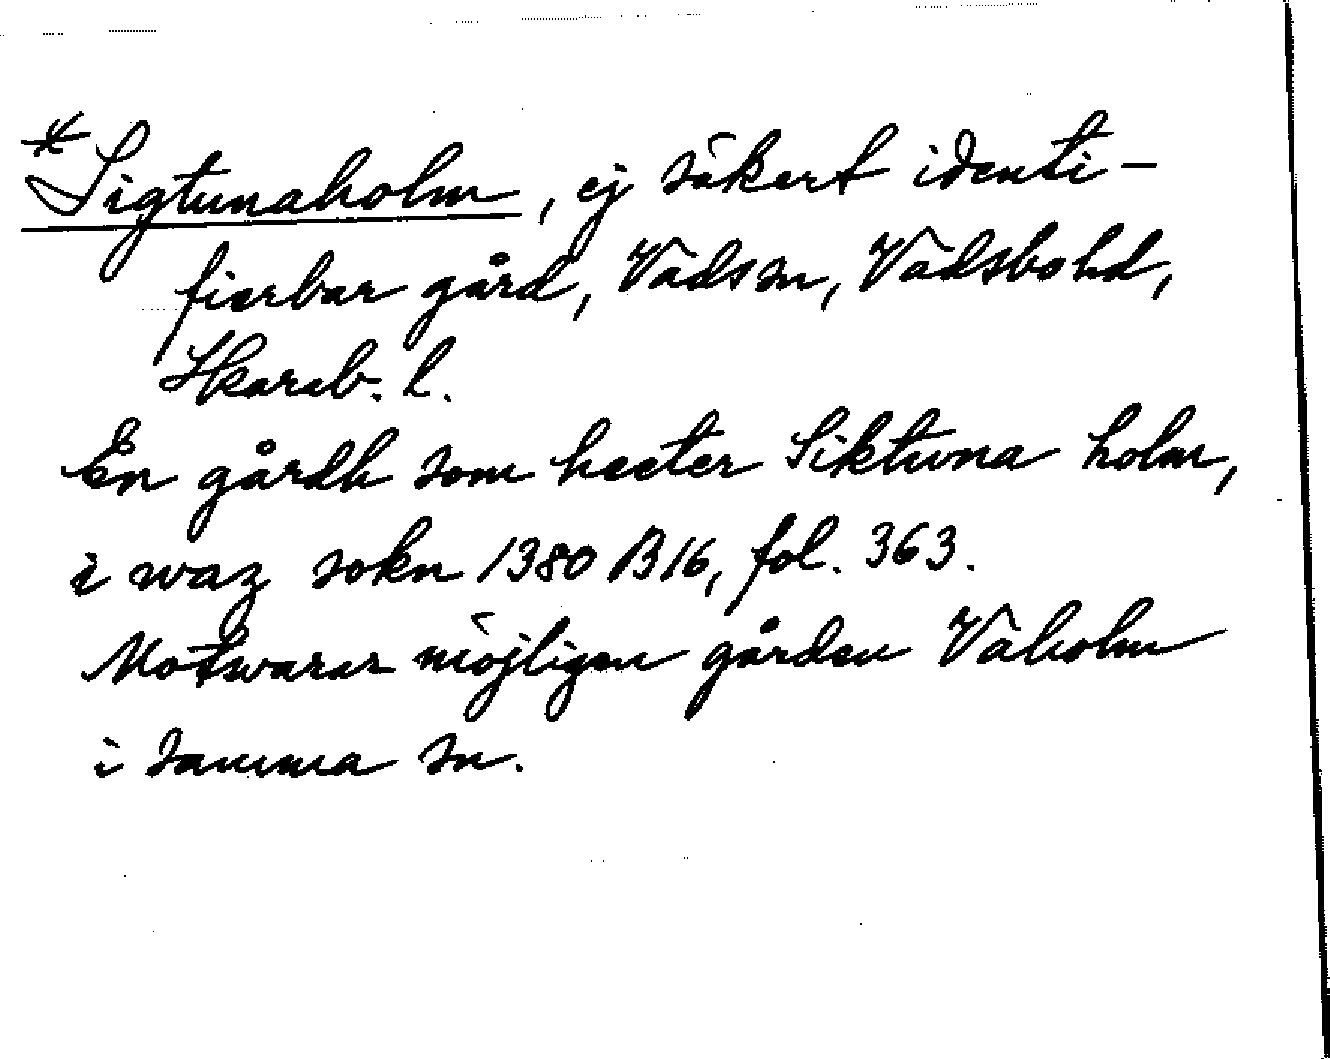 *Sigtunaholm, ej säkert identi-
fierbar gård, Väds sn, Vadsbo hd,
Skarab. l.
En gårdh som heeter Siktuna holm,
i waz sokn 1380 B16, fol. 363.
Motsvarar möjligen gården Vaholm
i samma sn.